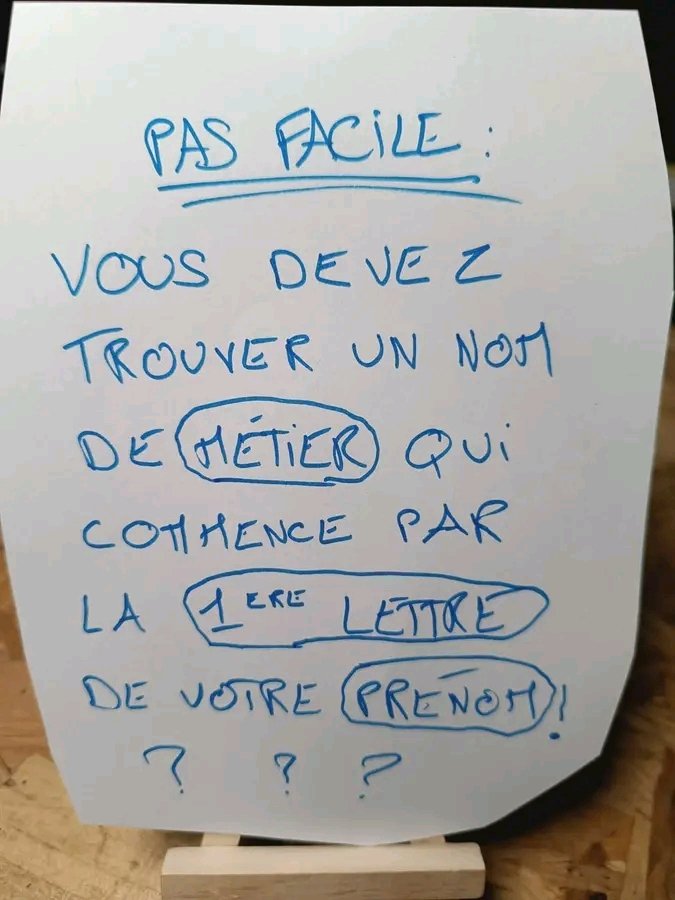 PAS FACILE :
VOUS DEVEZ
TROUVER UN NOM
DE MÉTIER QUI
COMMENCE PAR
LA 1ERE LETTRE
DE VOTRE PRÉNOM !
? ? ?